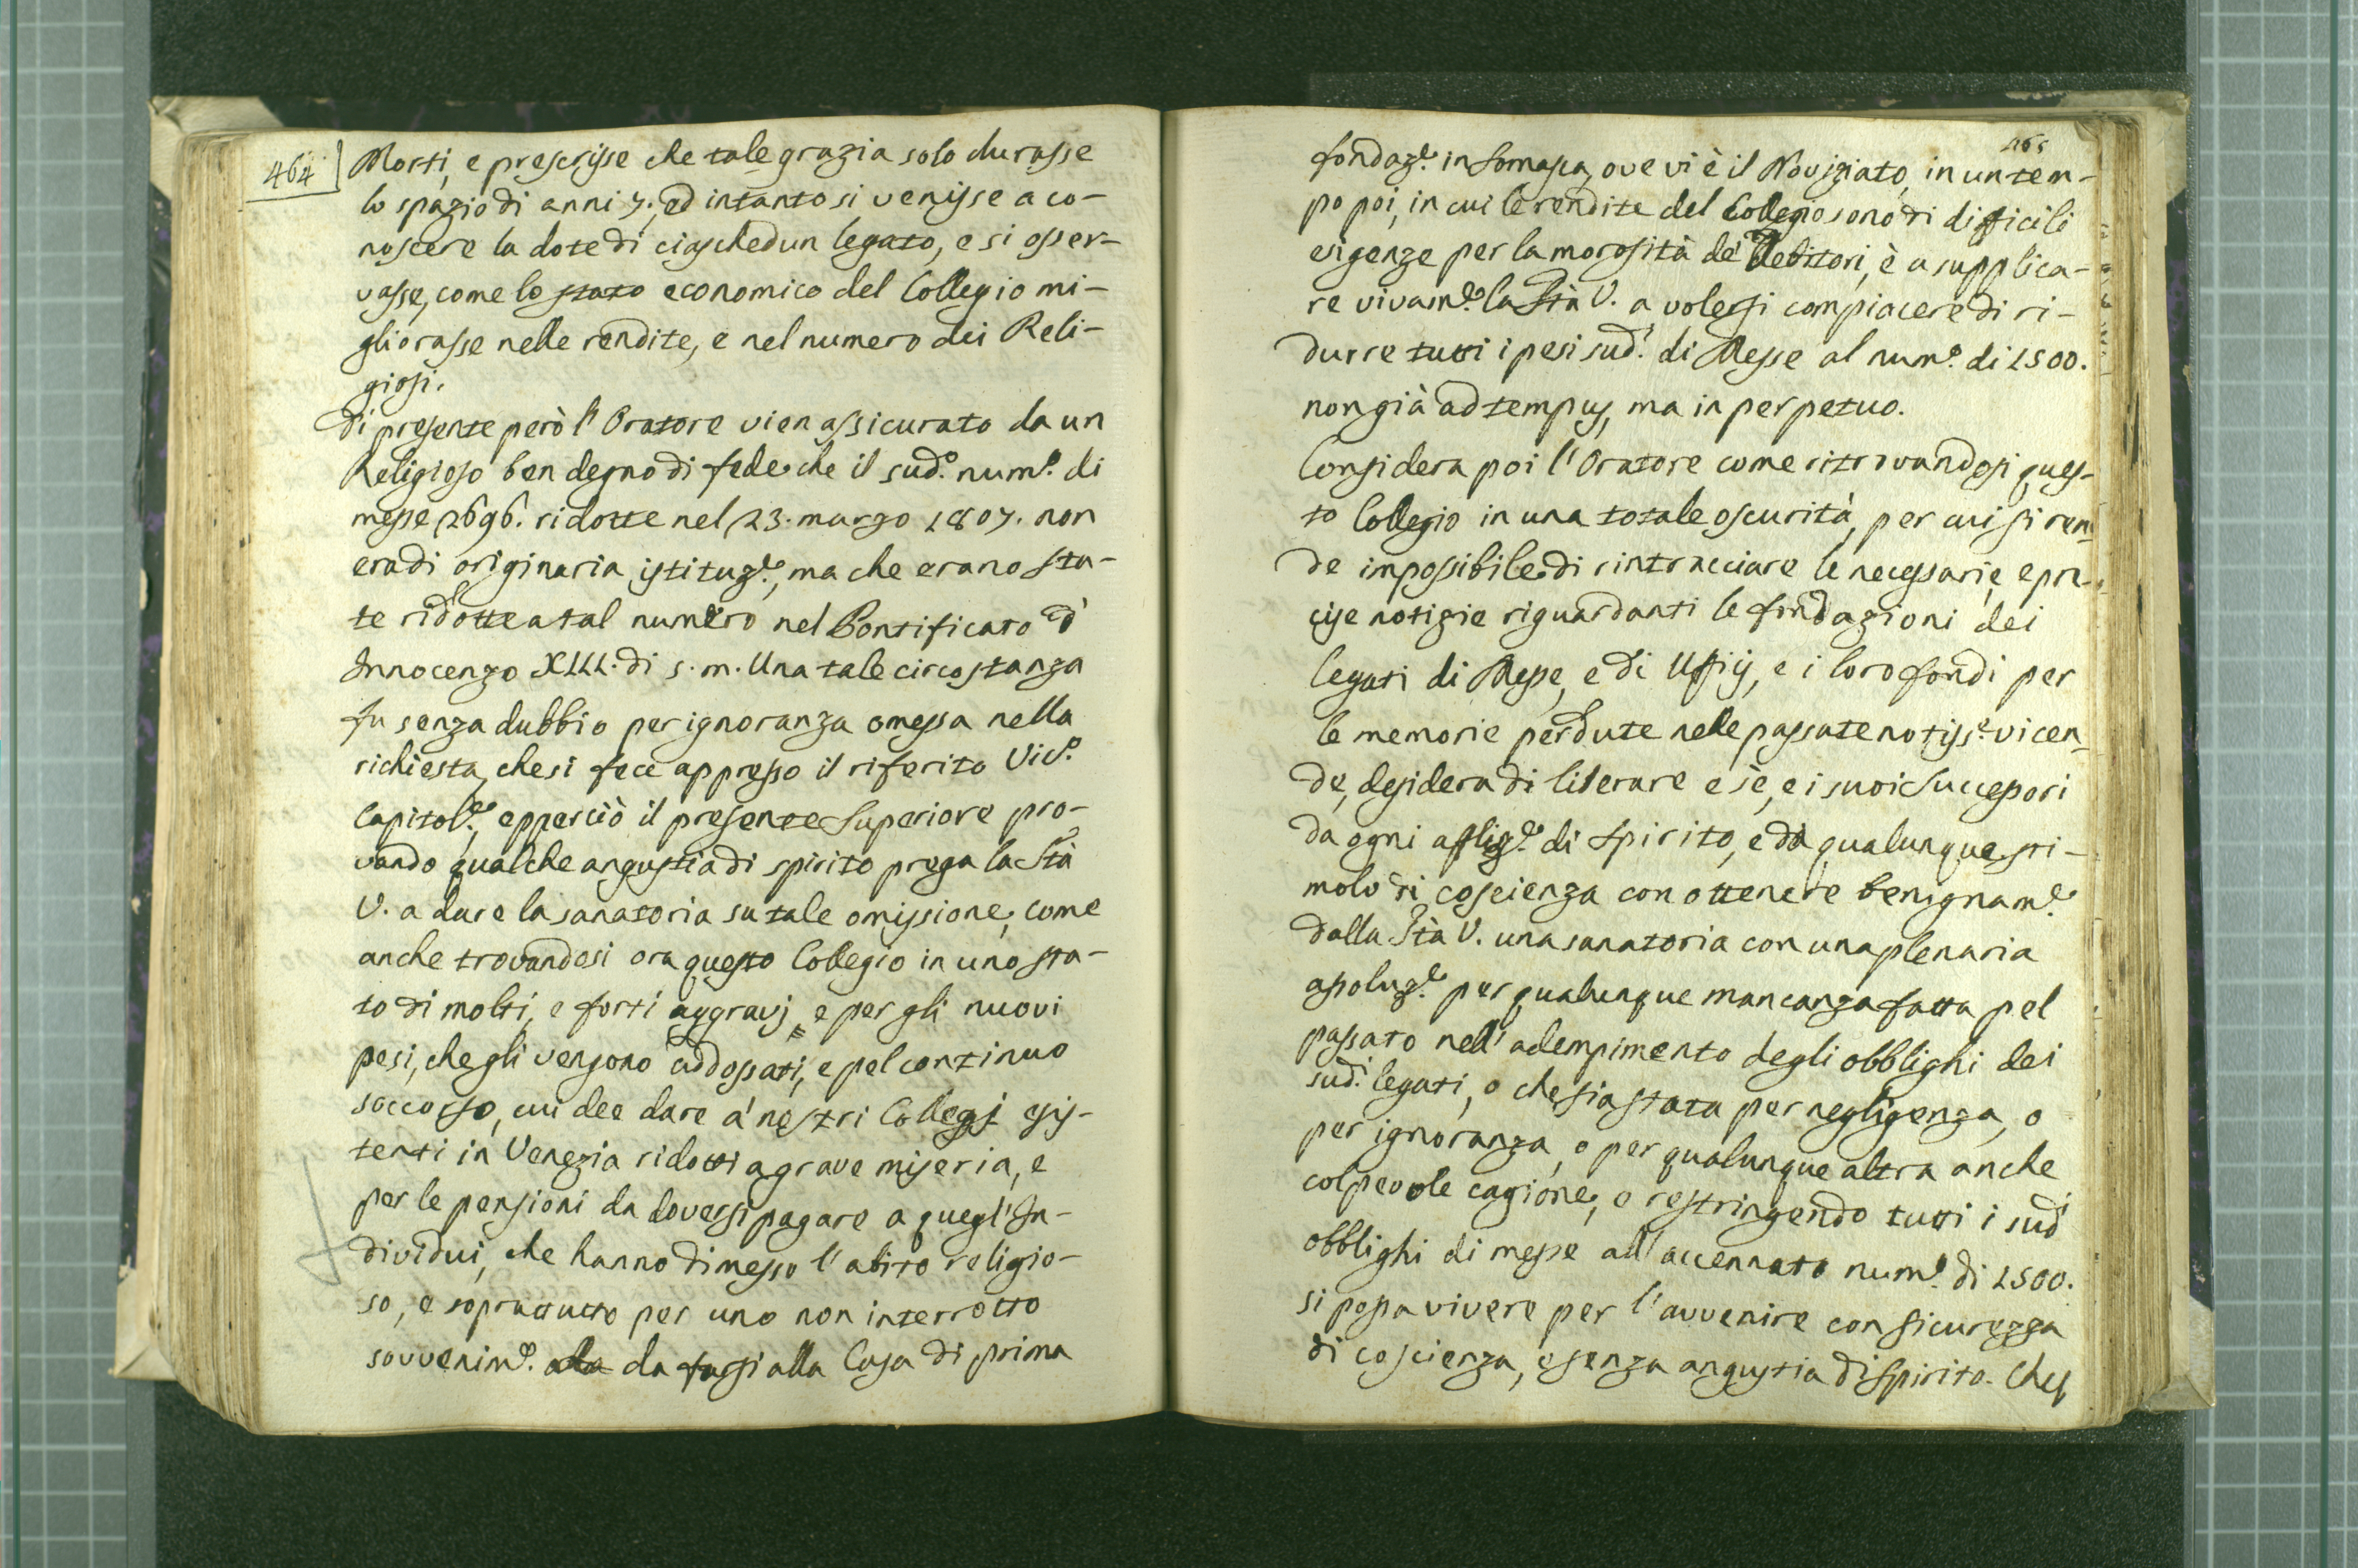 464
Morti, e prescrisse che tale grazia solo durasse
lo spazio di anni 7., ed intanto si venisse a co-
noscere la dote di ciaschedun legato, e si osser-
vasse, come lo stato economico del Collegio mi-
gliorasse nelle rendite, e nel numero dei Reli-
giosi.
Di presente però l'Oratore vien assicurato da un
Religioso ben degno di fede che il sud.o num.o di
messe 2696. ridotte nel 23. marzo 1807. non
era di originaria istituz.e, ma che erano sta-
te ridotte a tal numero nel Pontificato d'
Innocenzo XIII. di s. m. Una tale circostanza
fu senza dubbio per ignoranza omessa nella
richiesta, che si fece appresso il riferito Vic.o
Capitol.e, epperciò il presente Superiore pro-
vando qualche angustia di spirito prega la Stà
V. a dare la sanatoria su tale omissione, come
anche trovandosi ora questo Collegio in uno sta-
to di molti, e forti aggravj, e per gli nuovi
pesi, che gli vengono addossati, e pel continuo
soccorso, cui dee dare a' nostri Collegj esis-
tenti in Venezia ridotti a grave miseria, e
per le pensioni da doversi pagare a quegl'In-
dividui, che hanno dimesso l'abito religio-
so, e soprattutto per uno non interrotto
sovvenim.o da farsi alla Casa di prima
465
fondaz.e in Somasca, ove vi è il Noviziato, in un tem-
po poi, in cui le rendite del Collegio sono di difficile
esigenze per la morosità de' Debitori, è a supplica-
re vivam.e la Stà V. a volersi compiacere di ri-
durre tutti i pesi sud.i di Messe al num.o di 1500.
non già ad tempus, ma in perpetuo.
Considera poi l'Oratore come ritrovandosi ques-
to Collegio in una totale oscurità, per cui si ren-
de impossibile di rintracciare le necessarie, e pre-
cise notizie riguardanti le fondazioni dei
legati di Messe, e di Ufizj, e i loro fondi per
le memorie perdute nelle passate notiss.e vicen-
de, desidera di liberare e sè, e i suoi Successori
da ogni affliz.e di Spirito, e da qualunque sti-
molo di coscienza con ottenere benignam.e
dalla Stà V. una sanatoria con una plenaria
asoluz.e per qualunque mancanza fatta pel
passato nell'adempimento degli obblighi dei
sud.i legati, o che sia stata per negligenza, o
per ignoranza, o per qualunque altra anche
colpevole cagione, e restringendo tutti i sud.i
obblighi di messe all'accennato num.o di 1500.
si possa vivere per l'avvenire con sicurezza
di coscienza, e senza angustia di Spirito. Che